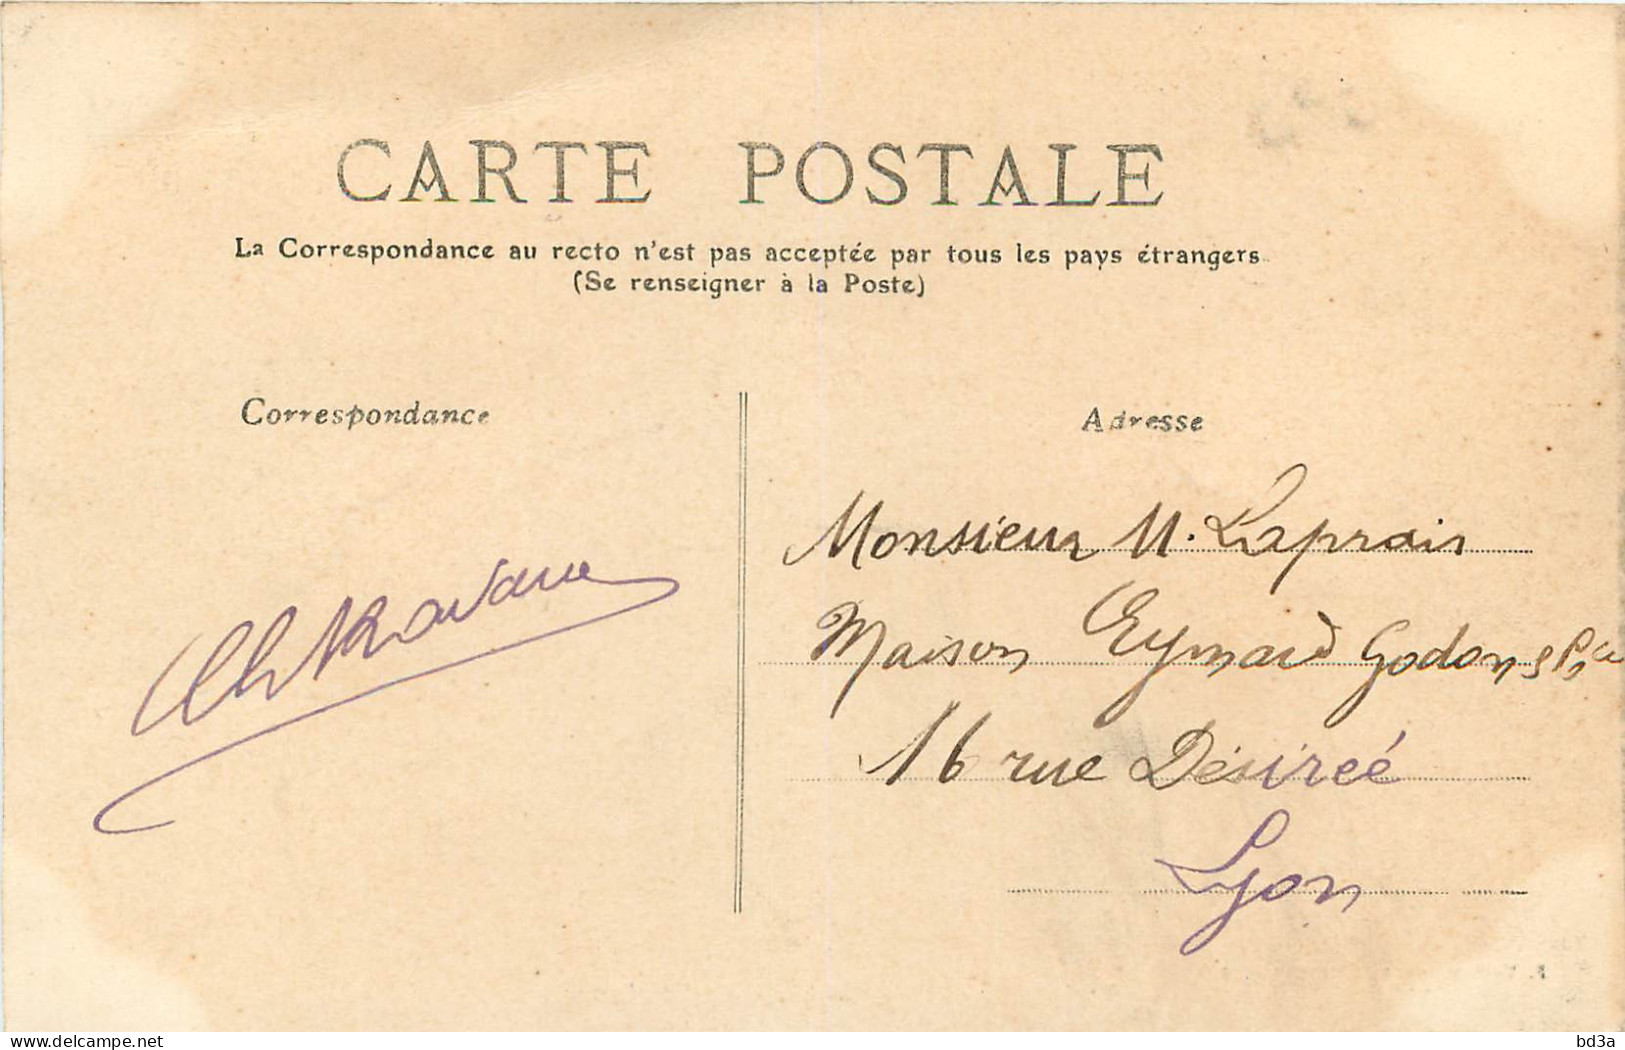 CARTE POSTALE
La Correspondance au recto n'est pas acceptée par tous les pays étrangers
(Se renseigner à la Poste)
Correspondance
Adresse
Monsieur M. Laprais
Maison Eymard Godon &
16 rue Désireé
Lyon
www.delcampe.net
bd3a